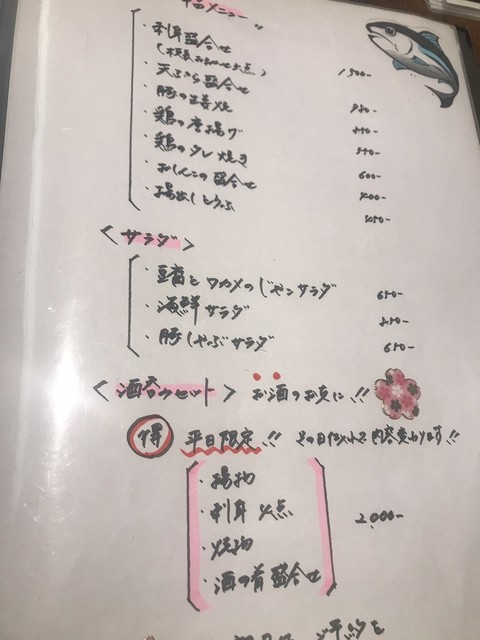 メニュー
・刺身盛合せ
1,500-
・天ぷら盛合せ
・豚の生姜焼
・鶏の唐揚げ
・鶏のタレ焼き
・おしんこの盛合せ
600-
・揚出しとうふ
400-
450-
<サラダ>
・豆腐とワカメのじゃこサラダ 650-
・海鮮サラダ
・豚しゃぶサラダ 650-
<酒呑みセット> お酒のお友に!!
得 平日限定!! その日によって内容変わります!!
・揚物
・刺身 2点 2,000-
・焼物
・酒の肴盛合せ